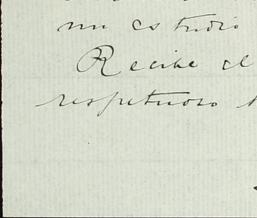 mi estudio
Recibe el
respetuoso